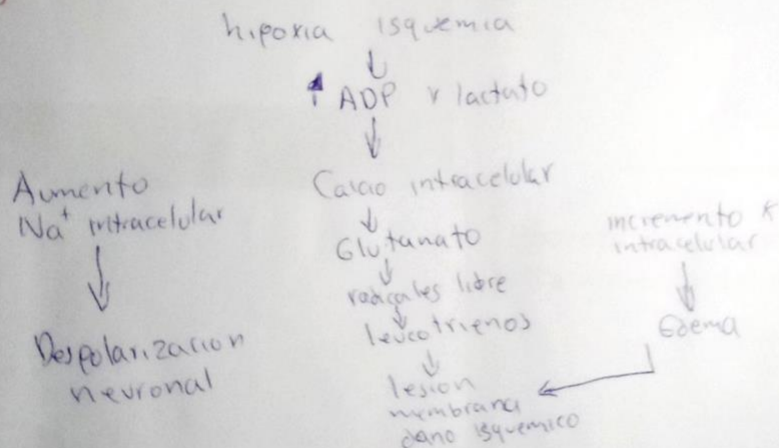 hipoxia isquemia
↓
↑ ADP y lactato
↓
Calcio intracelular
↓
Glutanato
↓
radicales libre
↓
leucotrienos
↓
lesion
membrana
daño isquemico
Aumento
Na+ intracelular
↓
Despolarizacion
neuronal
incremento K
intracelular
↓
Edema